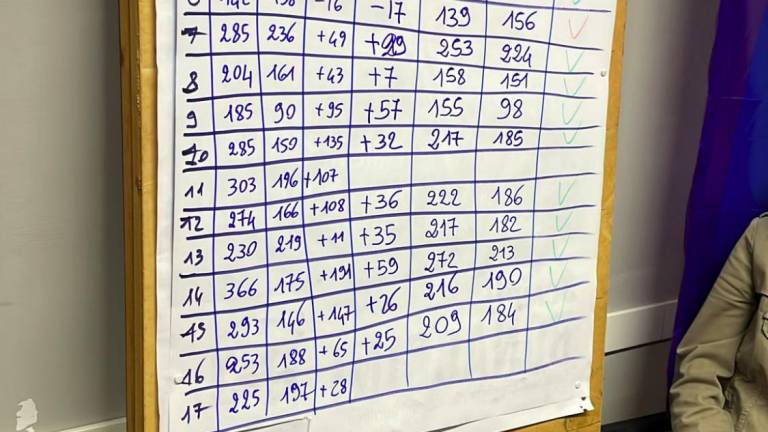 -16 -17 139 156
7 285 236 +49 +29 253 224 ✓
8 204 161 +43 +7 158 151 ✓
9 185 90 +95 +57 155 98 ✓
10 285 150 +135 +32 217 185 ✓
11 303 196 +107
12 274 166 +108 +36 222 186 ✓
13 230 219 +11 +35 217 182 ✓
14 366 175 +191 +59 272 213 ✓
15 293 146 +147 +26 216 190 ✓
16 253 188 +65 +25 209 184 ✓
17 225 197 +28